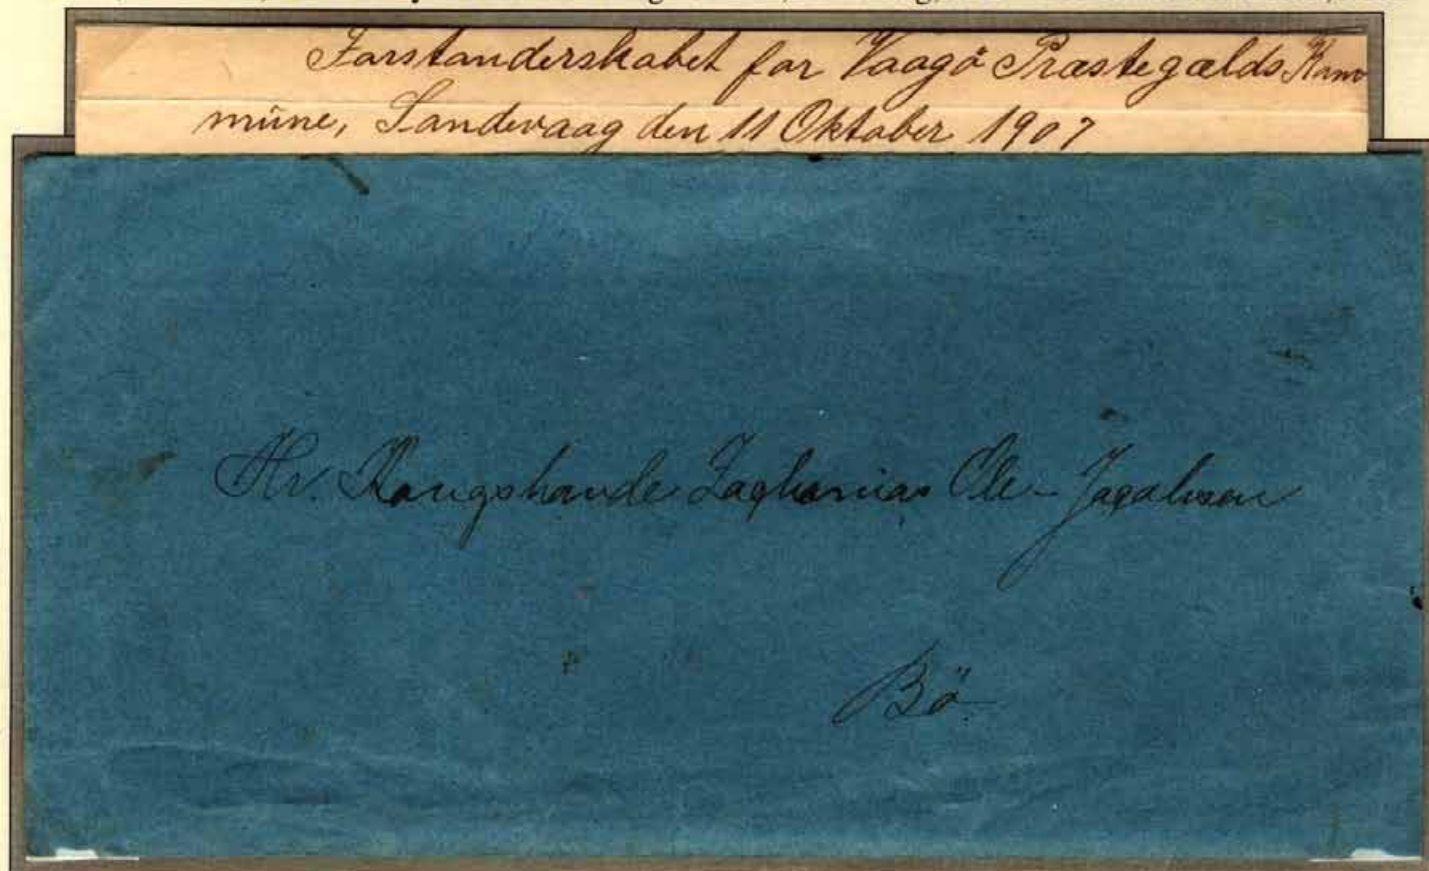 Forstanderskabet for Vaagö Præstegælds Kom
müne, Sandevaag den 11 Oktober 1907
Hr. Kongsbonde Zacharias Ole - Jacobsen
Bö.